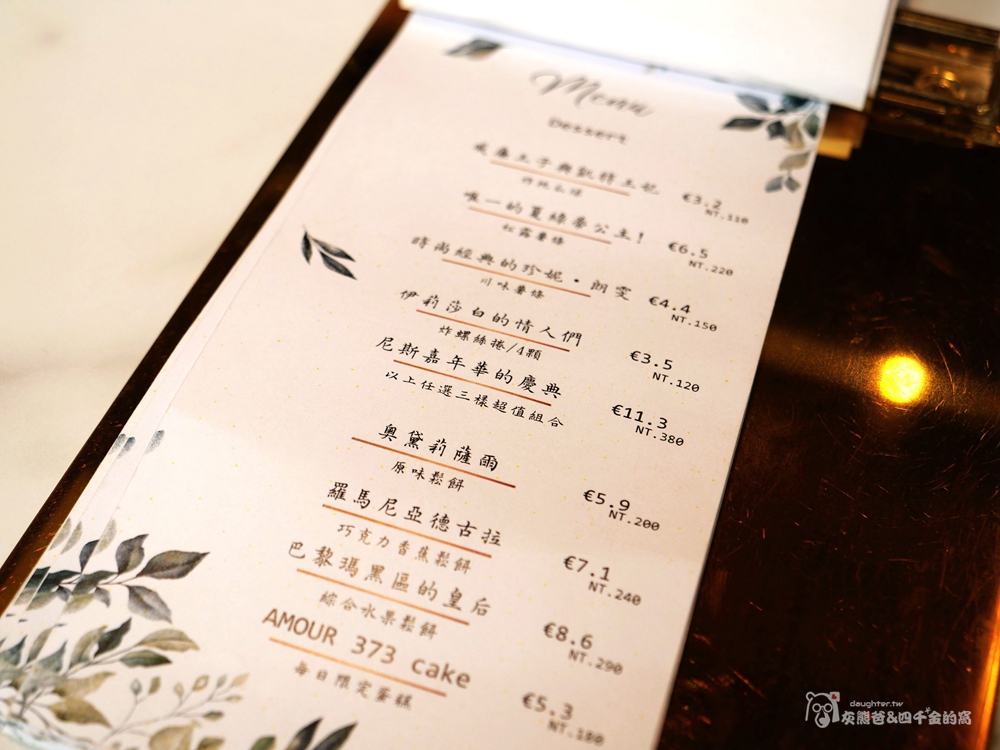 Menu
Dessert
威廉王子與凱特王妃
炸地瓜球
€3.2
NT.110
唯一的夏綠蒂公主!
松露薯條
€6.5
NT.220
時尚經典的珍妮·朗雯
川味薯條
€4.4
NT.150
伊莉莎白的情人們
炸螺絲捲/4顆
€3.5
NT.120
尼斯嘉年華的慶典
以上任選三樣超值組合
€11.3
NT.380
奧黛莉薩爾
原味鬆餅
€5.9
NT.200
羅馬尼亞德古拉
巧克力香蕉鬆餅
€7.1
NT.240
巴黎瑪黑區的皇后
綜合水果鬆餅
€8.6
NT.290
AMOUR 373 cake
每日限定蛋糕
€5.3
NT.180
daughter.tw
灰熊爸&四千金的窩